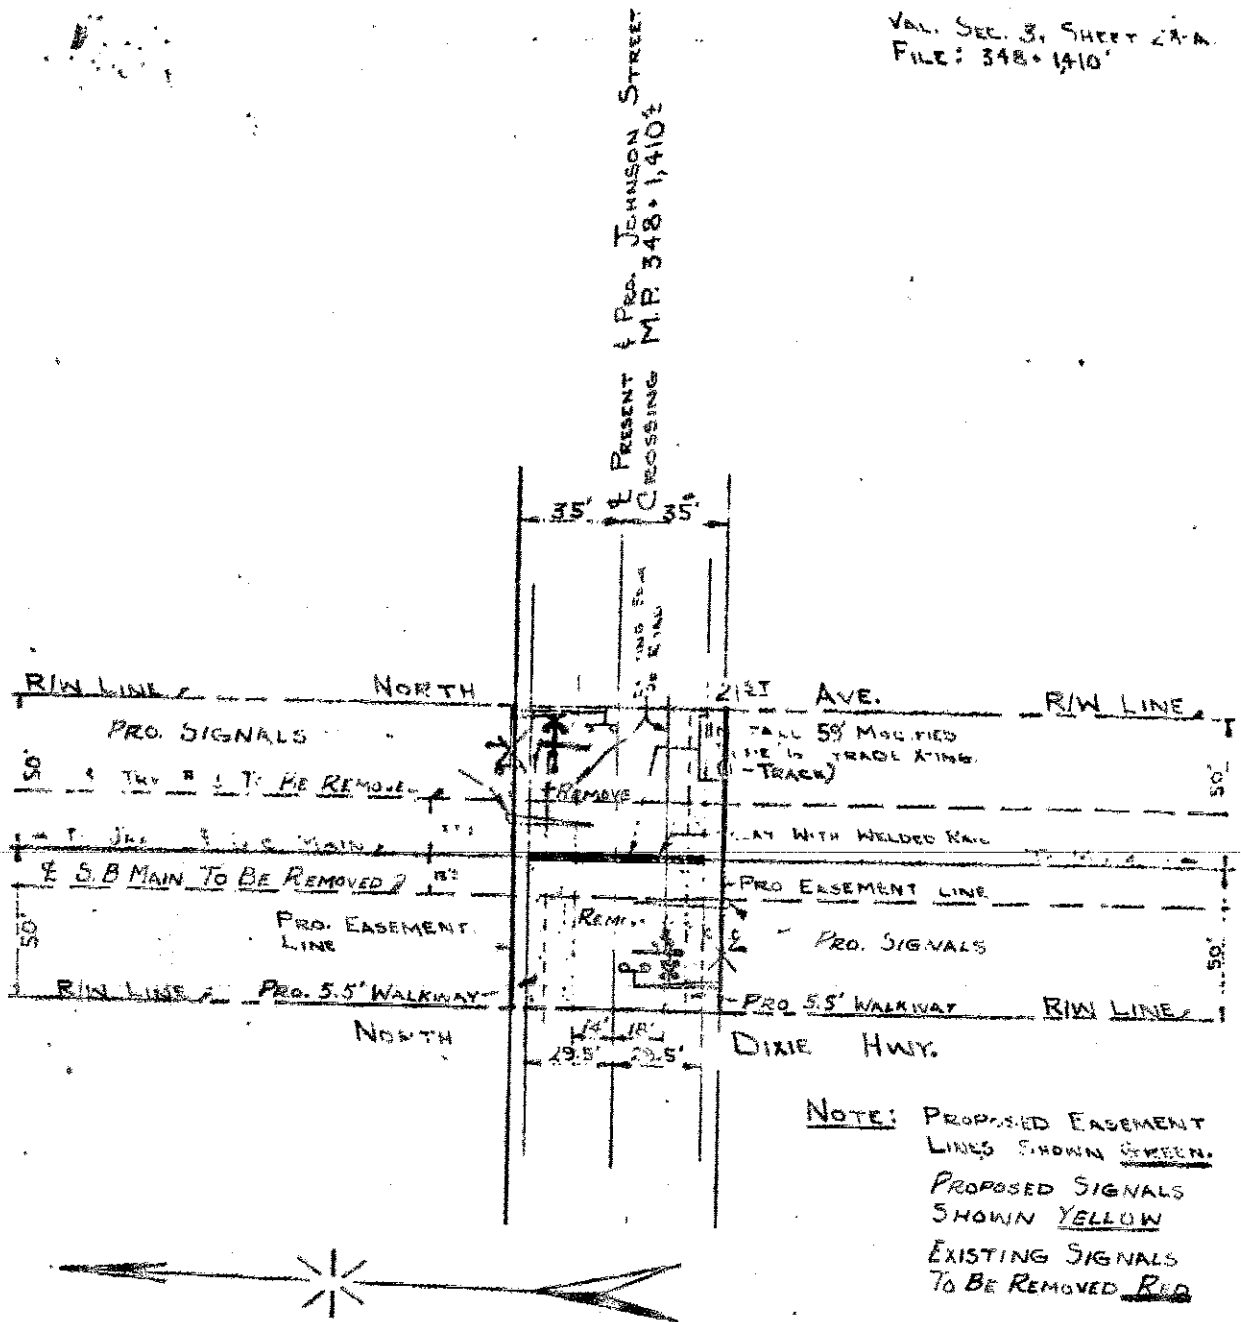 VAL. SEC. 3, SHEET
FILE: 348+1,410'
℄ PRESENT & PRO. JOHNSON STREET
CROSSING M.P. 348+1,410'±
35' 35'
R/W LINE NORTH 21ST AVE. R/W LINE
PRO. SIGNALS
59' MODIFIED
TRADE X-ING.
TRACK)
50'
TO BE REMOVED
REMOVE
50'
MAIN
WITH WELDED RAIL
℄ S.B MAIN TO BE REMOVED
PRO EASEMENT LINE
PRO. EASEMENT
LINE
50'
PRO. SIGNALS
50'
R/W LINE PRO. 5.5' WALKWAY
PRO 5.5' WALKWAY R/W LINE
14' 18'
NORTH DIXIE HWY.
29.5' 29.5'
NOTE: PROPOSED EASEMENT
LINES SHOWN GREEN.
PROPOSED SIGNALS
SHOWN YELLOW
EXISTING SIGNALS
TO BE REMOVED RED